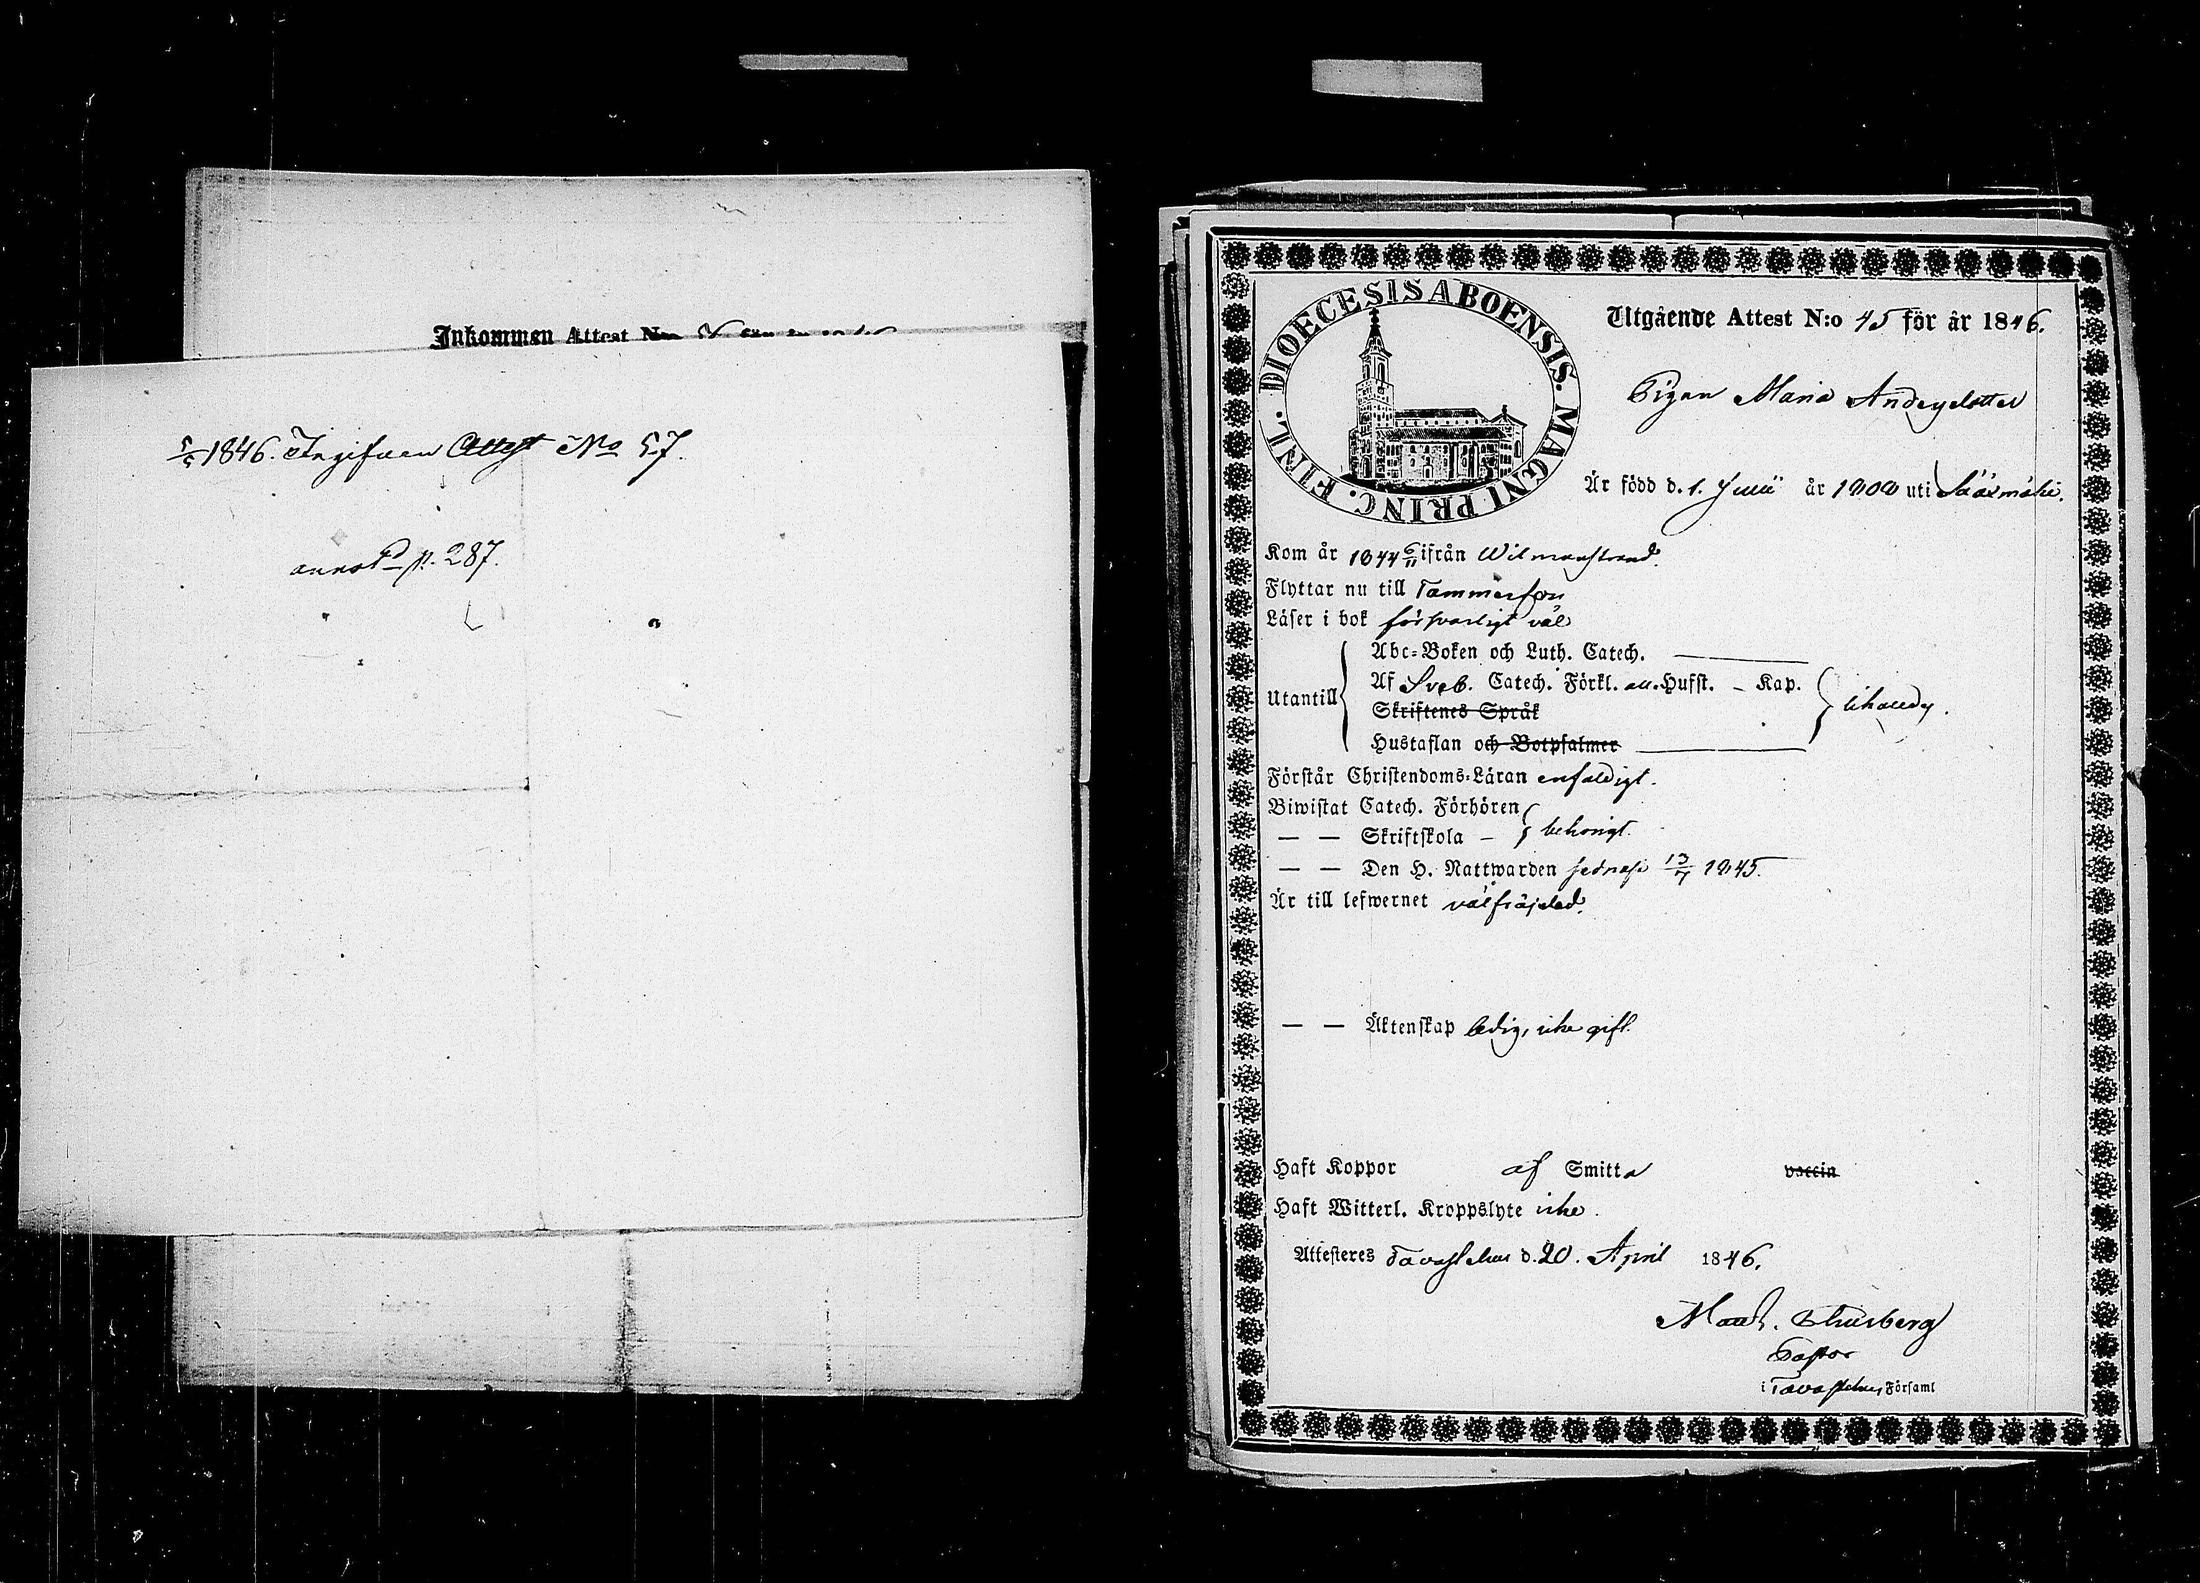 Inkommen Attest N:o
5/5 1846. Ingifven Attest No 57.
annot p. 287.
DIOECESIS ABOENSIS. MAGNI PRINC. FINL.
Utgående Attest N:o 45 för år 1846.
Pigan Maria Andersdotter
Är född d. 1. Julii år 1808 uti Sääxmäki.
Kom år 1844 6/11 ifrån Wilmanstrand.
Flyttar nu till Tammerfors
Läser i bok försvarligt väl
Utantill
Abc-Boken och Luth. Catech.
Af Sveb. Catech. Förkl. all. Hufst. – Kap.
Skriftenes Språk
Hustaflan och Botpsalmer
likaledes.
Förstår Christendoms-Läran enfaldigt.
Biwistat Catech. Förhören
— — Skriftskola – behörigt.
— — Den H. Nattwarden sednast 13/7 1845.
Är till lefwernet välfräjdad.
— — Äktenskap ledig, icke gift.
Haft Koppor af Smitta vaccin
Haft Witterl. Kroppslyte icke.
Attesteres Tavastehus d. 20. April 1846.
Thusberg
Pastor
i Tavastehus Församl